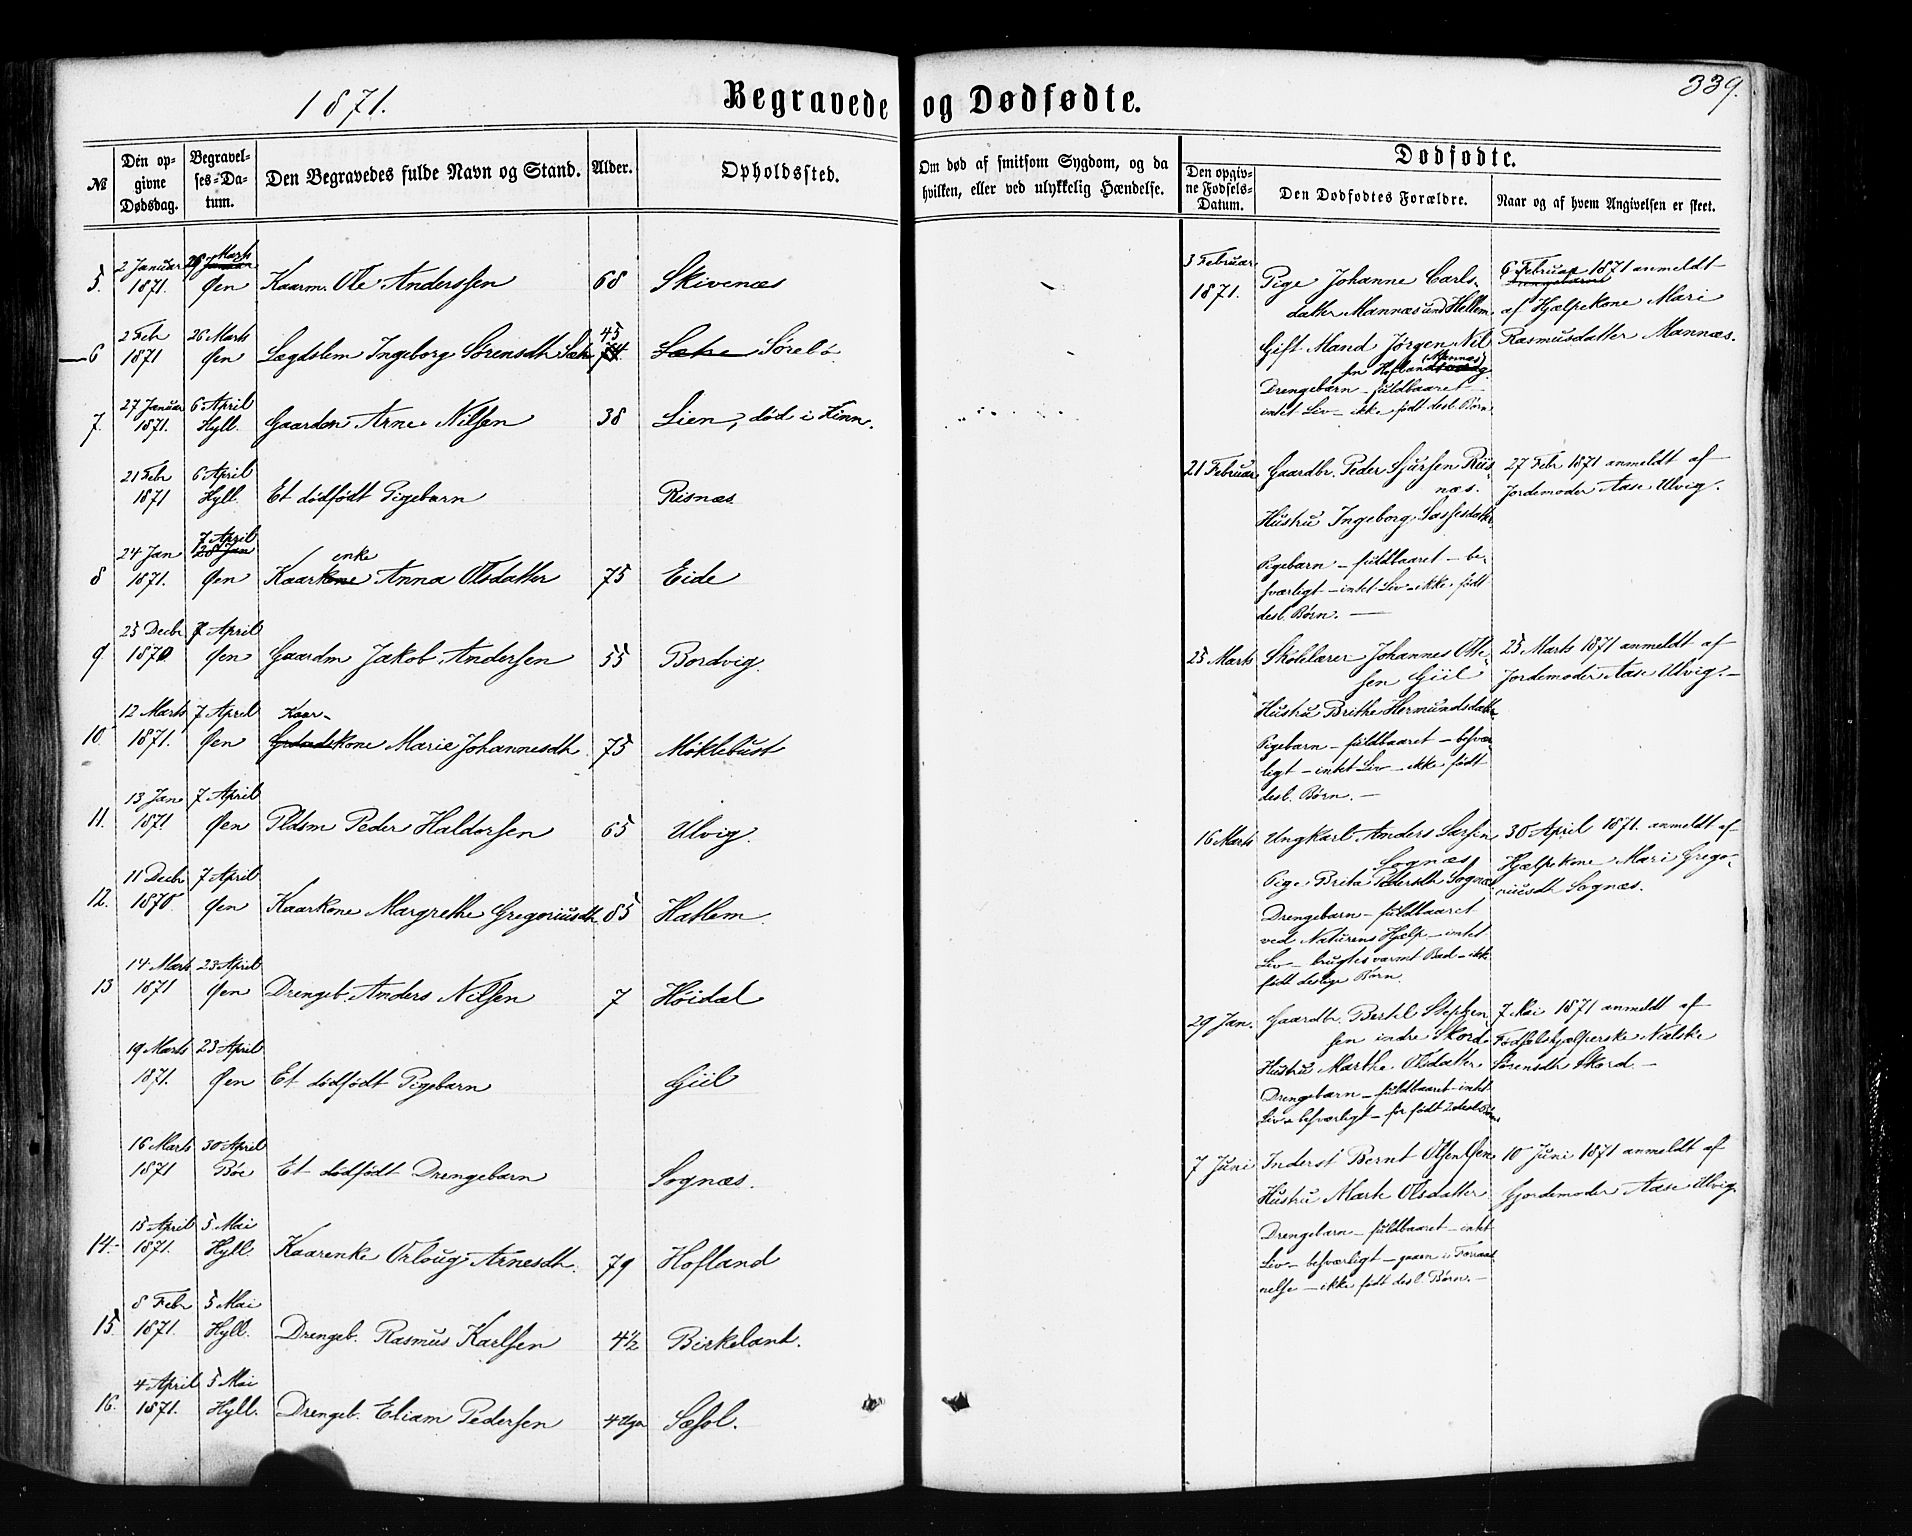 1871.
Begravede og Dødfødte.
339.
№
Den opgivne Dødsdag.
Begravelses-Datum.
Den Begravedes fulde Navn og Stand.
Alder.
Opholdssted.
Om død af smitsom Sygdom, og da hvilken, eller ved ulykkelig Hændelse.
Dødfødte.
Den opgivne Fødsels-Datum.
Den Dødfødtes Forældre.
Naar og af hvem Angivelsen er skeet.
2 Januar 28 Marts
5. 1871. Øen Kaarm. Ole Anderssen 68 Skivenæs
2 Feb 26 Marts 45
6 1871 Øen Lægdslem Ingeborg Sørensdt Sæte 74 Sætre Sørebø
27 Januar 6 April
7. 1871. Hyll. Gaardm Arne Nilsen 38 Lien, død i Kinn.
21 Febr 6 April
1871 Hyll. Et dødfødt Pigebarn Risnæs
24 Jan 7 April 28 Jan enke
8 1871. Øen Kaarkone Anna Olsdatter 75 Eide
25 Decbr 7 April
9 1870 Øen Gaardm Jakob Andersen 55 Bordvig.
12 Marts 7 April Kaar-
10. 1871. Øen kone Marie Johannesdt. 75 Møklebust
13 Jan 7 April
11. 1871 Øen Pldsm Peder Haldorsen 65 Ulvig.
11 Decbr 7 April
12. 1870. Øen Kaarkone Margrethe Gregoriusdt. 85 Hatlem.
14 Marts 23 April
13 1871 Øen Drengeb. Anders Nilsen 7 Høidal
19 Marts 23 April
1871. Øen Et dødfødt Pigebarn Giil
16 Marts 30 April
1871 Bøe Et dødfødt Drengebarn Sognæs.
15 April 5 Mai
14. 1871. Hyll. Kaarenke Orloug Arnesdt. 79 Hofland
8 Febr 5 Mai
15. 1871. Hyll. Drengeb. Rasmus Karlsen 4½ Birkeland.
4 April 5 Mai
16. 1871. Hyll. Drengeb. Eliam Pedersen 4 Uger Sæsol.
3 Februar 1871.
Pige Johanne Carls-
datter Mannæs und Hellem
Gift Mand Jörgen Nil
sen Hofland (Mannæs)
Drengebarn – fuldbaaret –
intet Liv – ikke født desl. Børn
6 Februar 1871 anmeldt
af Hjælpekone Mari
Rasmusdatter Mannæs.
21 Februar
Gaardbr. Peder Sjursen Riis-
næs.
Hustru Ingeborg Lassesdatter
Pigebarn – fuldbaaret – be-
sværligt – intet Liv – ikke født
desl. Børn. —
27 Febr 1871 anmeldt af
Jordemoder Aase Ulvig.
25 Marts
Skolelærer Johannes Ole-
sen Giil
Hustru Brithe Hermundsdatter
Pigebarn – fuldbaaret – besvær-
ligt – intet Liv – ikke født
desl. Børn. —
25 Marts 1871 anmeldt af
Jordemoder Aase Ulvig. –
16 Marts
Ungkarl Anders Larsen
Sognæs
Pige Brita Pedersdt. Sognæs
Drengebarn – fuldbaaret
ved Naturens Hjælp – intet
Liv – brugtes varmt Bad – ikke
født deslige Børn.
30 April 1871. anmeldt af
Hjælpekone Mari Grego-
riusdt Sognæs.
29 Jan.
Gaardbr. Bertil Stephen-
sen indre Skord
Hustru Marthe Olsdatter
Drengebarn – fuldbaaret – intet
Liv – besværligt – før født 2 desl. Børn
7 Mai 1871 anmeldt af
Fødselshjælperske Nielske
Sørensdt Skord. –
7 Juni
Inderst Bernt Olsen Øen
Hustru Marte Olsdatter
Drengebarn – fuldbaaret – intet
Liv – besværligt – gaaen i Forraad-
nelse – ikke født desl. Børn. –
10 Juni 1871 anmeldt af
Gjordemoder Aase Ulvig